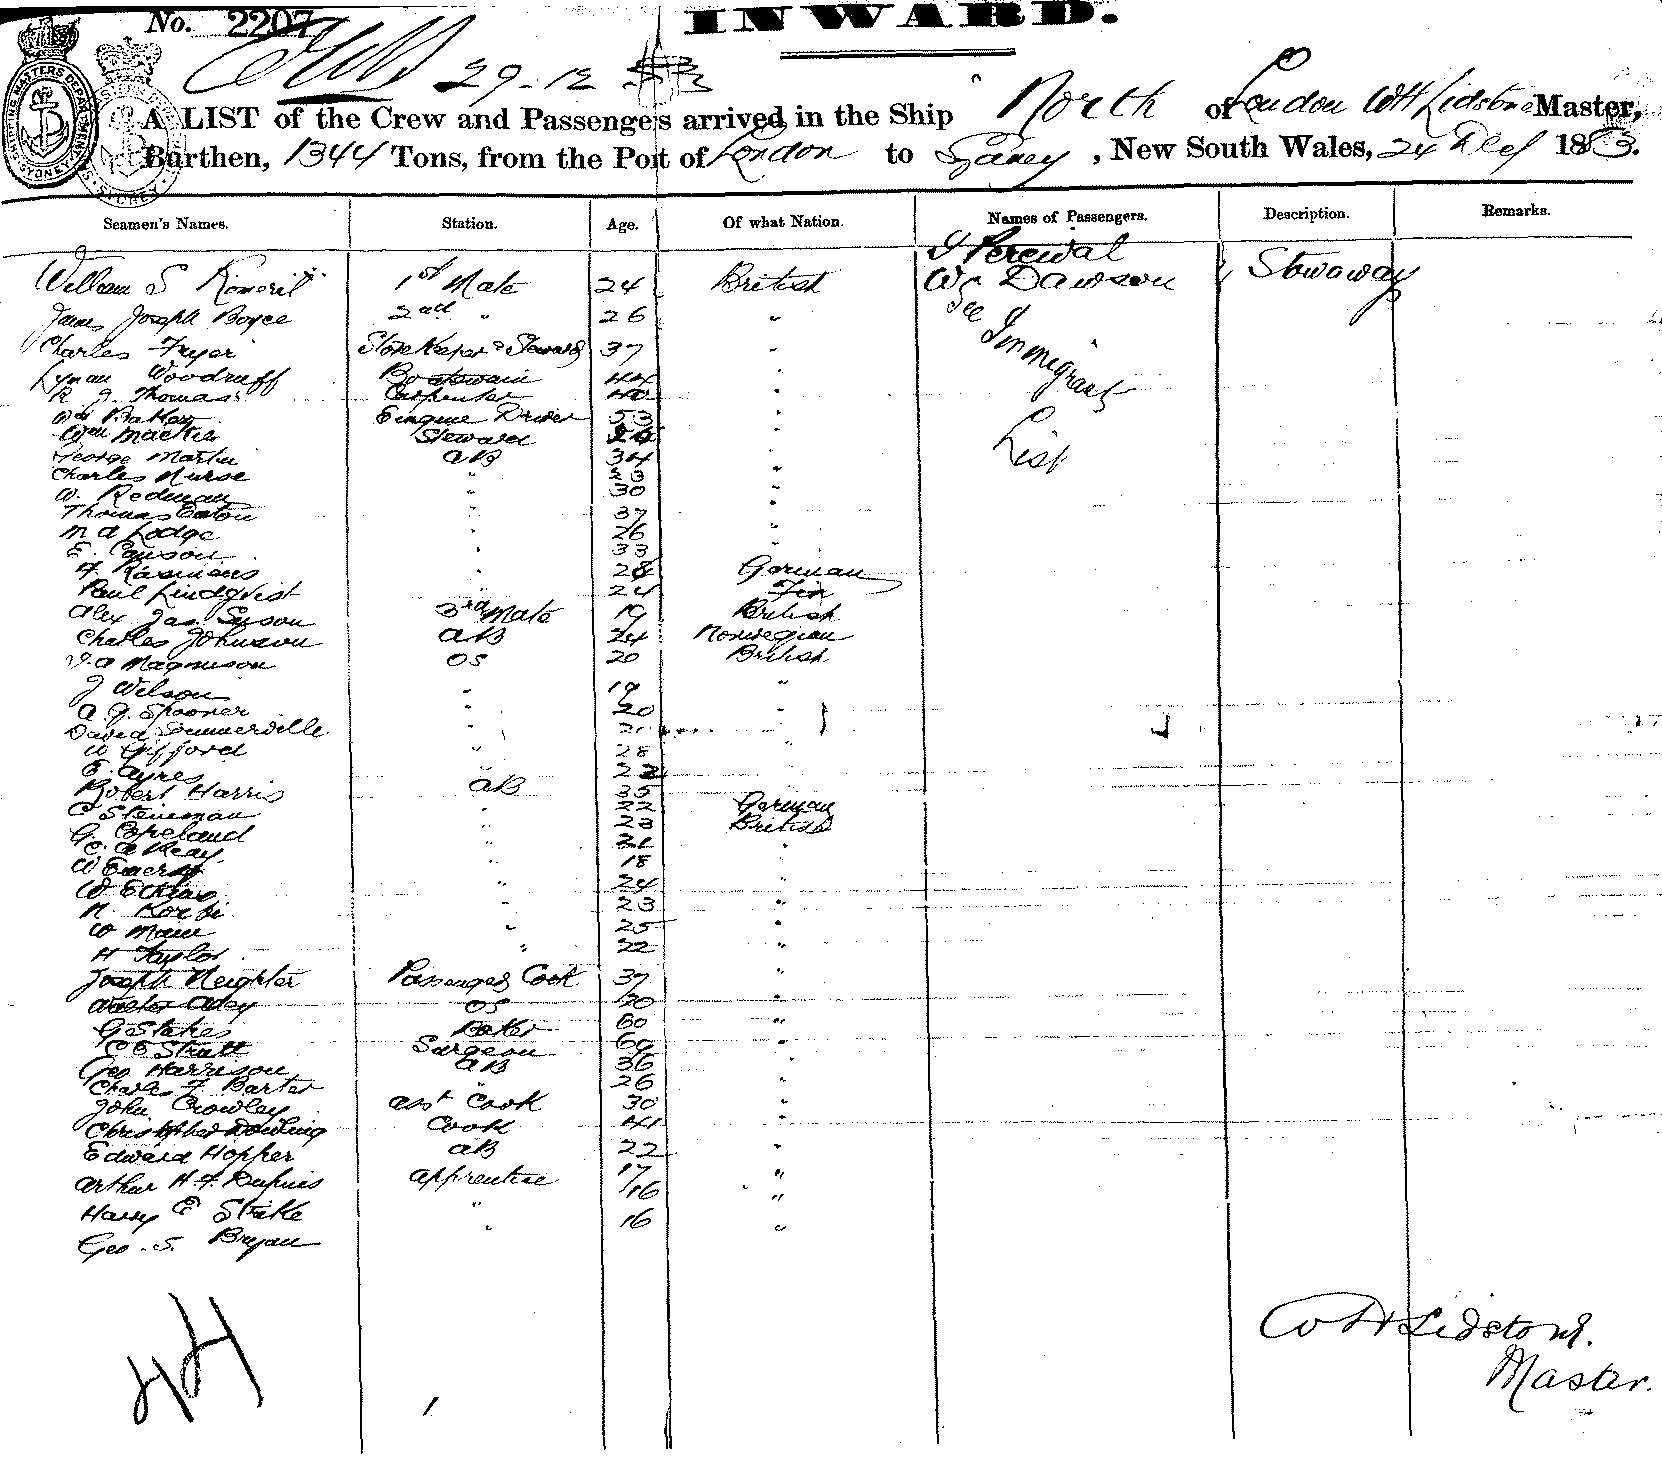 No. 2207
INWARD.
29-12
A LIST of the Crew and Passengers arrived in the Ship North of London WH Lidstone Master,
Burthen, 1344 Tons, from the Port of London to Sydney, New South Wales, 24 Dec 1883.
Seamen's Names. Station. Age. Of what Nation. Names of Passengers. Description. Remarks.
Percival
William S 1st Mate 24 British W Dawson Stowaways
James Joseph Boyce 2nd " 26 " See
Charles Fryer Storekeeper & Steward 37 " Immigrants
Lyman Woodruff Boatswain 44 "
R J. Thomas Carpenter 40 "
Baker Engine Driver 53 "
Wm Mackie Steward "
George Martin AB 34 " List
Charles Nurse " 23 "
W. Redman " 30 "
Thomas Eaton " 37 "
M A Lodge " 26 "
E. " 33
28 German
Paul Lindqvist 24 Fin
Alex Jas. 3rd Mate 19 British
Charles Johnson AB 24 Norwegian
Magnuson OS 20 British
J Wilson " 19 "
A. J. Spooner " 20 "
David Sommerville "
W Gifford " 28 "
E. Ayres " 22
Robert Harris AB 35
C Steineman " 22 German
G. Copeland " 23 British
" 21 "
W Emery 18
W. " 24 "
" 23
W " 25 "
H Taylor " 22 "
Joseph Neighter Passengers Cook 37 "
Walter OS 20 "
G Stakes Baker 60 "
C E Stratt Surgeon "
Geo Harrison AB 36 "
Charles F. Barter " 26
John Crowley asst Cook 30 "
Christopher Dowling Cook 41 "
Edward Hopper AB 22 "
Arthur H. F. Dupuis apprentice 17 "
Harry E Strike " 16 "
Geo. S. Bryan " 16 "
W H Lidstone.
Master.
44